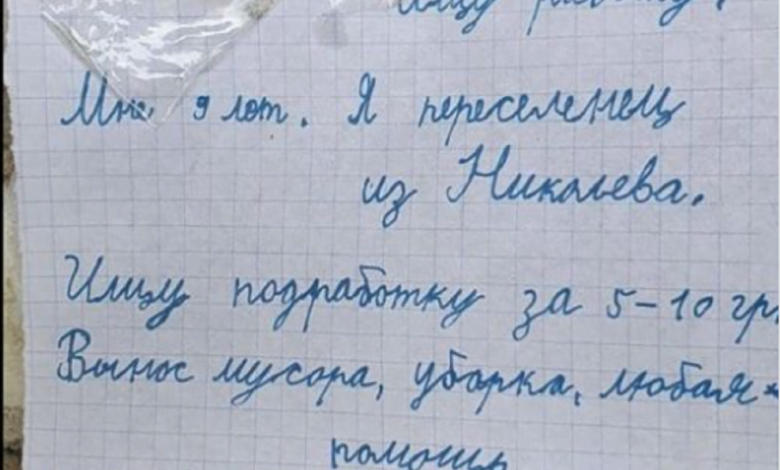 Ищу работу!
Мне 9 лет. Я переселенец
из Николаева.
Ищу подработку за 5-10 гр.
Вынос мусора, уборка, любая
помощь